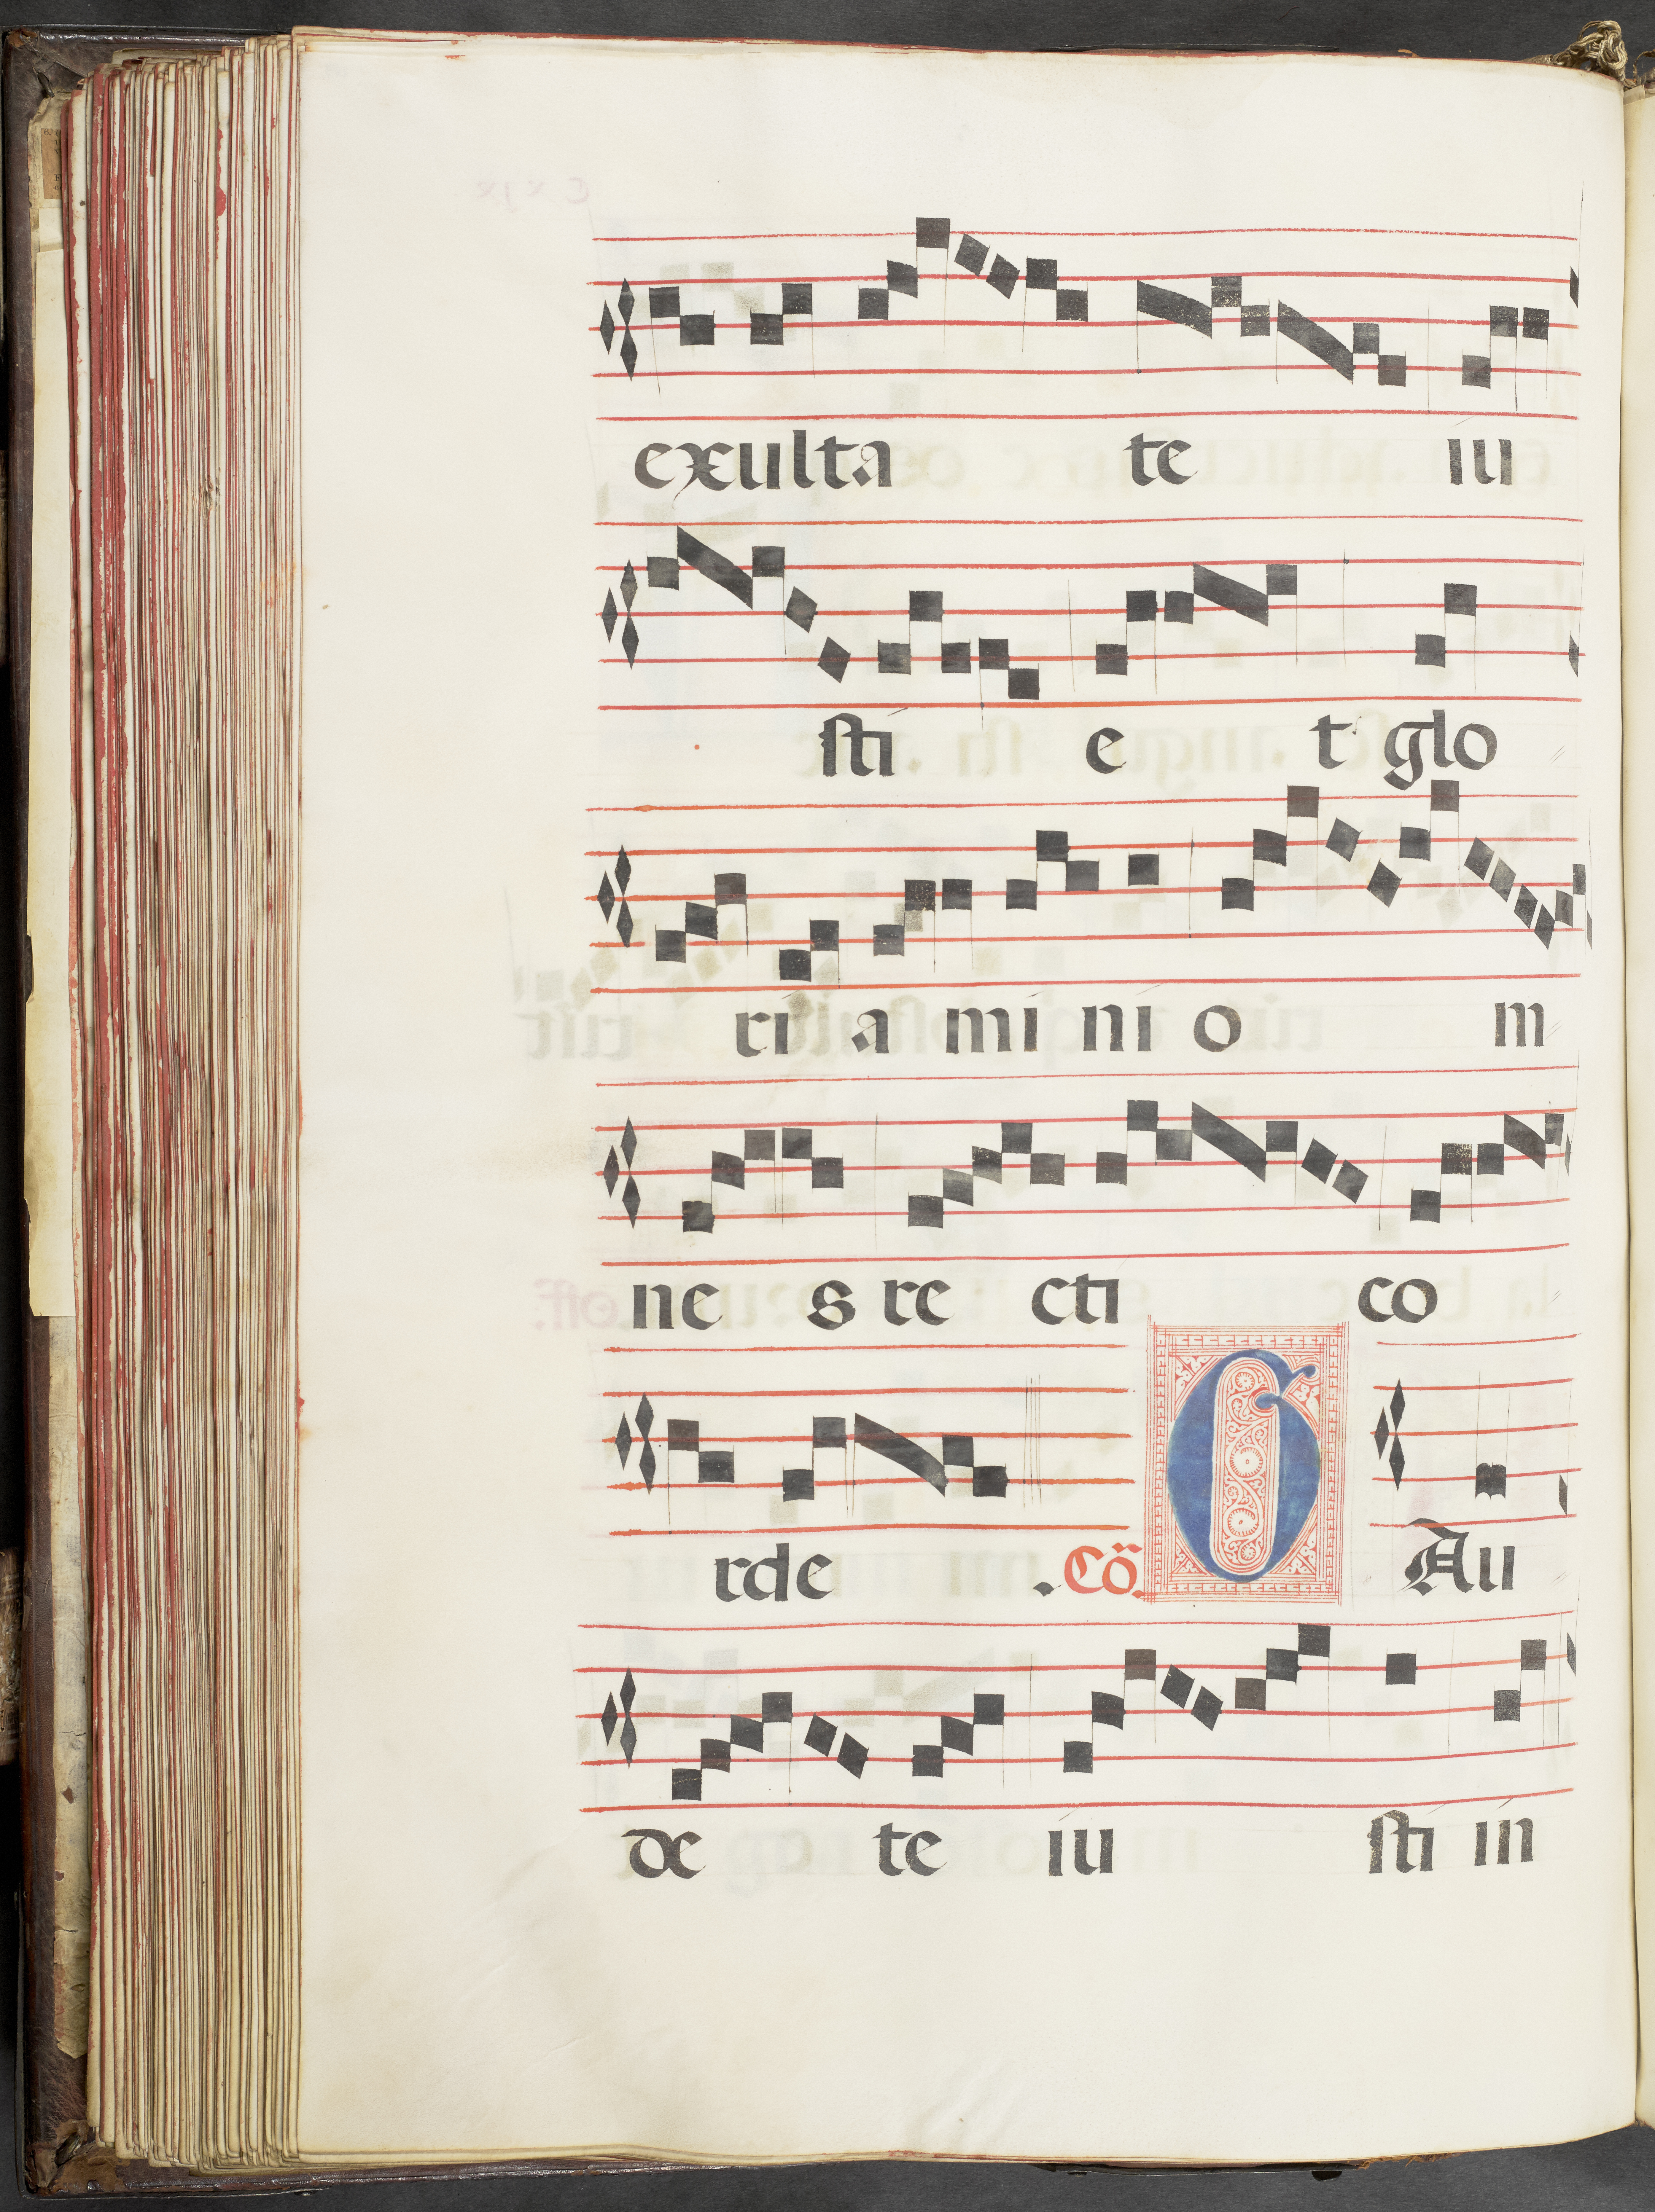 exulta te iu
sti e t glo
ri a mi ni o m
ne s re cti co
rde . Cõ. G Au
de te iu sti in